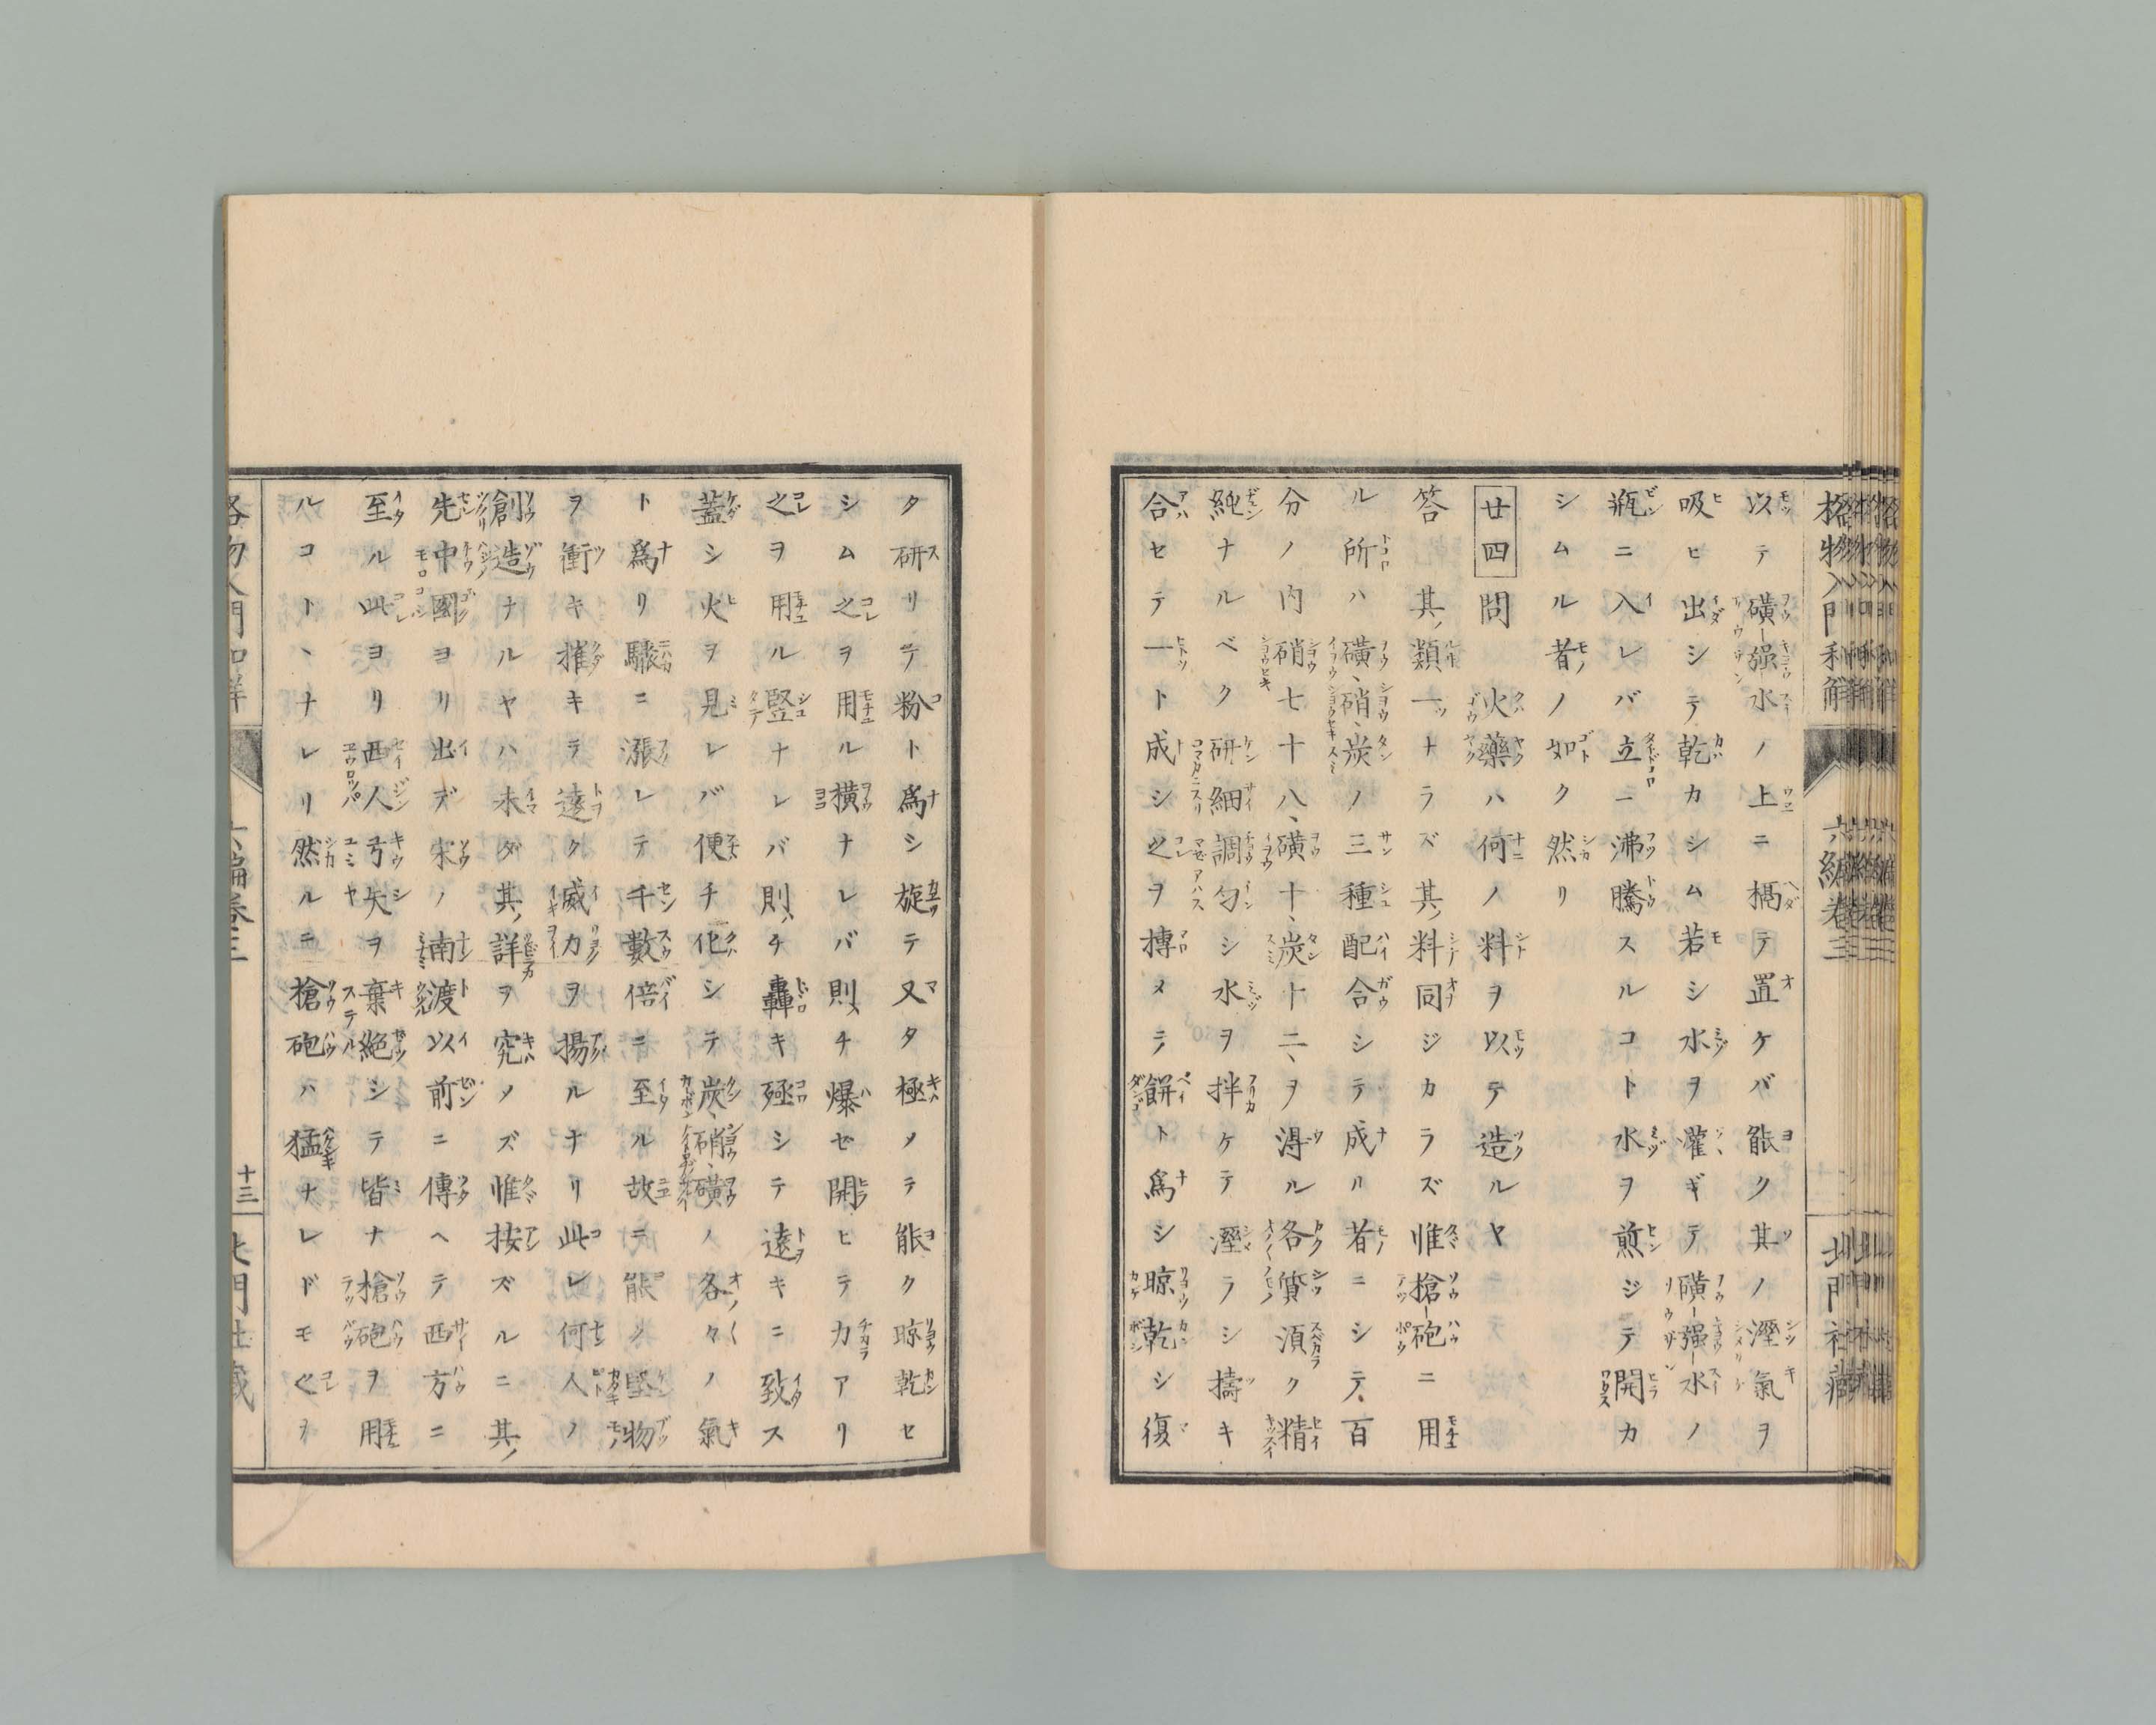 格物入門和解 六編卷三 北門社藏
以テ磺強水ノ上ニ槅テ置ケバ能ク其ノ溼氣ヲ
吸ヒ出シテ乾カシム若シ水ヲ灌ギテ磺強水ノ
瓶ニ入レバ立ニ沸騰スルコト水ヲ煎ジテ開カ
シムル者ノ如ク然リ
廿四 問 火藥ハ何ノ料ヲ以テ造ルヤ
答 其ノ類一ツナラズ其ノ料同ジカラズ惟槍砲ニ用
ル所ハ磺、硝、炭ノ三種配合シテ成ル者ニシテ、百
分ノ内硝七十八、磺十、炭十二、ヲ淂ル各質湏ク精
純ナルベク研細調勻シ水ヲ拌ケテ溼ラシ擣キ
合セテ一ト成シ之ヲ摶メテ餅ト爲シ晾乾シ復
タ研リテ粉ト爲シ旋テ又タ極メテ能ク晾乾セ
シム之ヲ用ル横ナレバ則チ爆ゼ開ヒテ力アリ
之ヲ用ル竪ナレバ則チ轟キ殛シテ遠キニ致ス
蓋シ火ヲ見レバ便チ化シテ炭、硝、磺ノ各々ノ氣
ト爲リ驟ニ漲レテ千數倍ニ至ル故ニ能ク堅物
ヲ衝キ摧キテ遠ク威力ヲ揚ルナリ此レ何人ノ
創造ナルヤハ未ダ其ノ詳ヲ究メズ惟按ズルニ其ノ
先中國ヨリ出デ宋ノ南渡以前ニ傳ヘテ西方ニ
至ル此ヨリ西人弓矢ヲ棄絶シテ皆ナ槍砲ヲ用
ルコトヽナレリ然ルニ槍砲ハ猛ナレドモ之ヲ
格物入門和解 六編卷三 十三 北門社藏